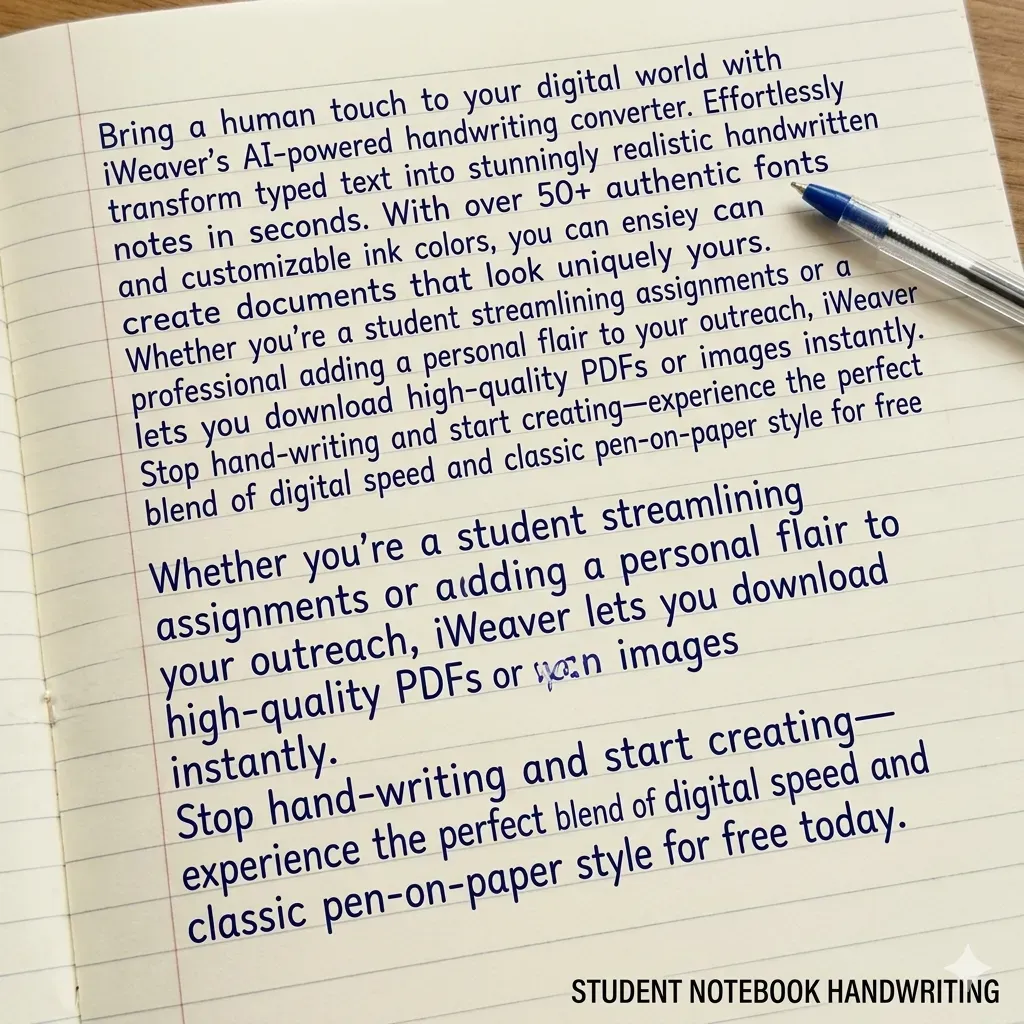 Bring a human touch to your digital world with
iWeaver's AI-powered handwriting converter. Effortlessly
transform typed text into stunningly realistic handwritten
notes in seconds. With over 50+ authentic fonts
and customizable ink colors, you can ensiey can
create documents that look uniquely yours.
Whether you're a student streamlining assignments or a
professional adding a personal flair to your outreach, iWeaver
lets you download high-quality PDFs or images instantly.
Stop hand-writing and start creating—experience the perfect
blend of digital speed and classic pen-on-paper style for free
Whether you're a student streamlining
assignments or adding a personal flair to
your outreach, iWeaver lets you download
high-quality PDFs or images
instantly.
Stop hand-writing and start creating—
experience the perfect blend of digital speed and
classic pen-on-paper style for free today.
STUDENT NOTEBOOK HANDWRITING